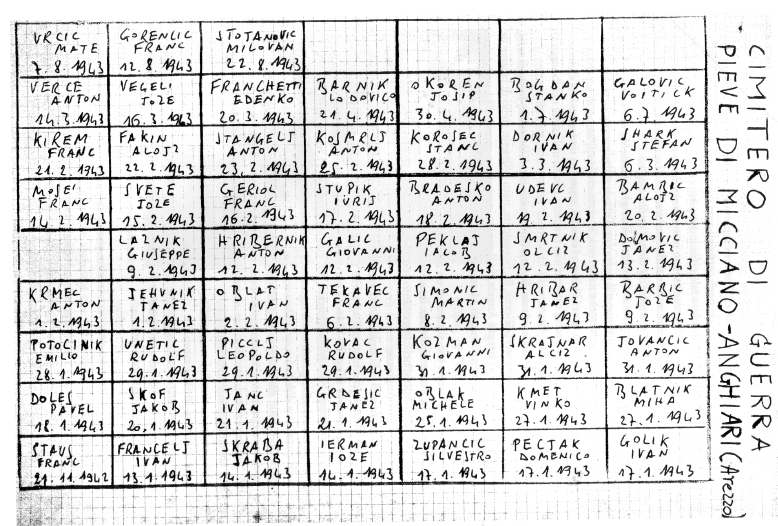 CIMITERO DI GUERRA
PIEVE DI MICCIANO - ANGHIARI (Arezzo)
VRCIC MATE 7.8.1943
GORENLIC FRANC 12.8.1943
STOJANOVIC MILOVAN 22.8.1943
VERCE ANTON 14.3.1943
VEGELI JOZE 16.3.1943
FRANCHETTI EDENKO 20.3.1943
BARNIK LODOVICO 21.4.1943
OKOREN JOSIP 30.4.1943
BOGDAN STANKO 1.7.1943
GALOVIC VOITICK 6.7.1943
KIREM FRANC 21.2.1943
FAKIN ALOJZ 22.2.1943
STANGELJ ANTON 23.2.1943
KOSMRLJ ANTON 25.2.1943
KOROSEC STANC 28.2.1943
DORNIK IVAN 3.3.1943
SHARK STEFAN 6.3.1943
MOSEI FRANC 14.2.1943
SVETE JOZE 15.2.1943
GERIOL FRANC 16.2.1943
STUPIK IURIJ 17.2.1943
BRADESKO ANTON 18.2.1943
UDEVC IVAN 19.2.1943
BAMBIC ALOJZ 20.2.1943
LAZNIK GIUSEPPE 9.2.1943
HRIBERNIK ANTON 12.2.1943
GALIC GIOVANNI 12.2.1943
PEKLAJ IACOB 12.2.1943
SMRTNIK OLCIZ 12.2.1943
DOMOVIC JANEZ 13.2.1943
KRMEC ANTON 1.2.1943
JEHVNIK JANEZ 1.2.1943
OBLAT IVAN 2.2.1943
TEKAVEC FRANC 6.2.1943
SIMONIC MARTIN 8.2.1943
HRIBAR JANEZ 9.2.1943
BARBIC JOZE 9.2.1943
POTOCINIK EMILIO 28.1.1943
UNETIC RUDOLF 29.1.1943
PICCLJ LEOPOLDO 29.1.1943
KOVAC RUDOLF 29.1.1943
KOZMAN GIOVANNI 31.1.1943
SKRAJNAR ALCIZ 31.1.1943
JOVANCIC ANTON 31.1.1943
DOLES PAVEL 18.1.1943
SKOF JAKOB 20.1.1943
JANC IVAN 21.1.1943
GRDESIC JANEZ 21.1.1943
OBLAK MICHELE 25.1.1943
KMET VINKO 27.1.1943
BLATNIK MIHA 27.1.1943
STAUS FRANC 21.11.1942
FRANCELJ IVAN 13.1.1943
SKRABA JAKOB 14.1.1943
IERMAN IOZE 14.1.1943
ZUPANCIC SILVESTRO 17.1.1943
PECTAK DOMENICO 17.1.1943
GOLIK IVAN 17.1.1943